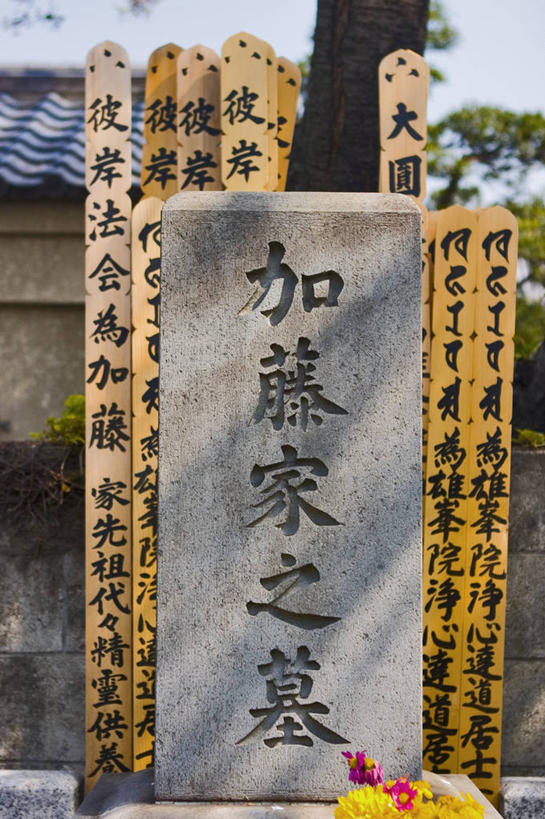 加藤家之墓
彼岸法会為加藤家先祖代々精霊供養
彼岸
彼岸
彼岸
大圓
為雄峯院浄心達道居士
為雄峯院浄心達道居士